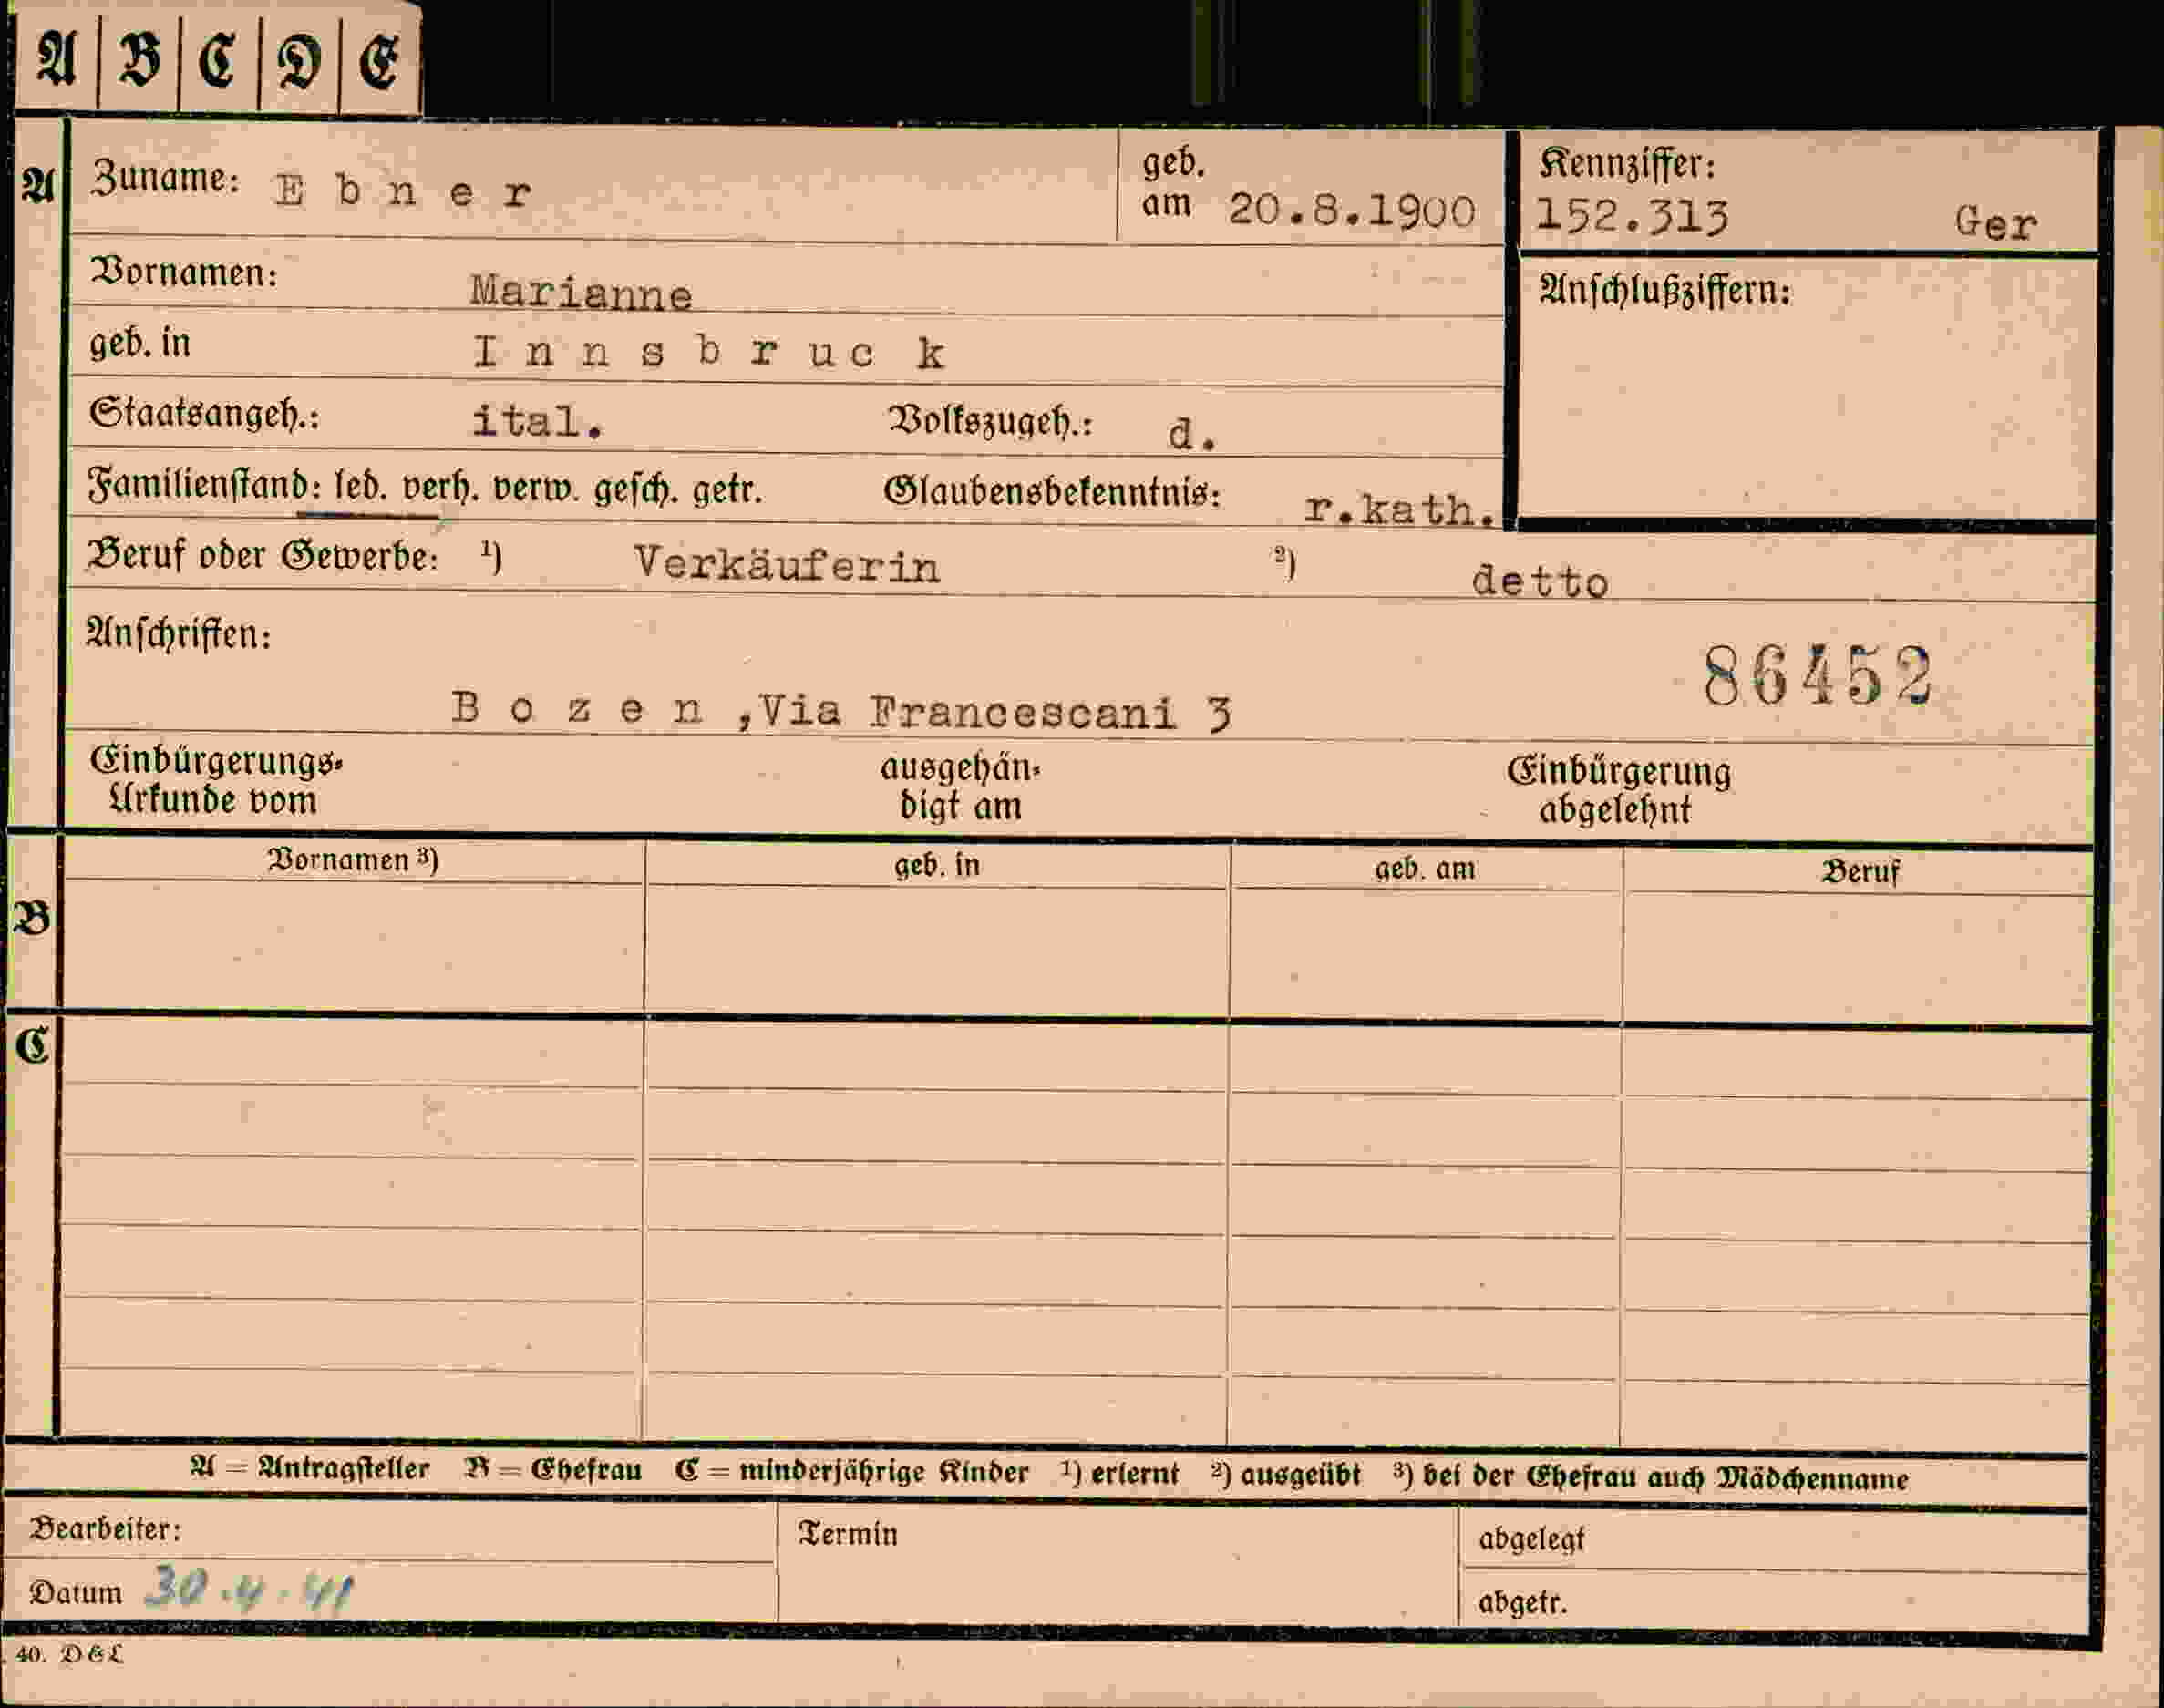 A B C D E
A Zuname: Ebner geb. am 20.8.1900 Kennziffer: 152.313 Ger
Vornamen: Marianne Anschlußziffern:
geb. in Innsbruck
Staatsangeh.: ital. Volkszugeh.: d.
Familienstand: led. verh. verw. gesch. getr. Glaubensbekenntnis: r.kath.
Beruf oder Gewerbe: 1) Verkäuferin 2) detto
Anschriften:
86452
Bozen ,Via Francescani 3
Einbürgerungs- ausgehän- Einbürgerung
Urkunde vom digt am abgelehnt
Vornamen 3) geb. in geb. am Beruf
B
C
A = Antragsteller B = Ehefrau C = minderjährige Kinder 1) erlernt 2) ausgeübt 3) bei der Ehefrau auch Mädchenname
Bearbeiter: Termin abgelegt
Datum 30.4.41 abgetr.
40. D & L